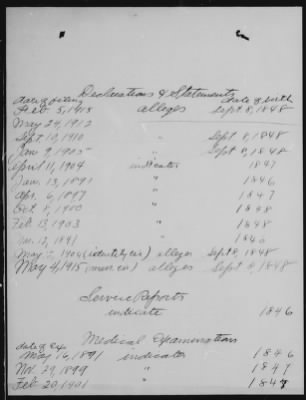 Declarations & Statements
date of filing date of birth
Feb. 5, 1915 alleges Sept 8, 1848
May 24, 1912 "
Sept. 10, 1910 " Sept 8, 1848
Jan 9, 1905 " Sept 8, 1848
April 11, 1904 indicates 1847
Jan. 13, 1891 " 1846
Apr. 6, 1897 " 1847
Oct 8, 1900 " 1848
Feb. 13, 1903 " 1848
Jan. 12, 1891 " 1846
May 1904 (identity cir) alleges Sept 8, 1848
May 4, 1915 (mar cir) alleges Sept 8, 1848
Service Reports
indicate 1846
Medical Examinations
date of Ex
May 16, 1891 indicates 1846
Nov. 29, 1899 " 1847
Feb. 20, 1901 " 1847